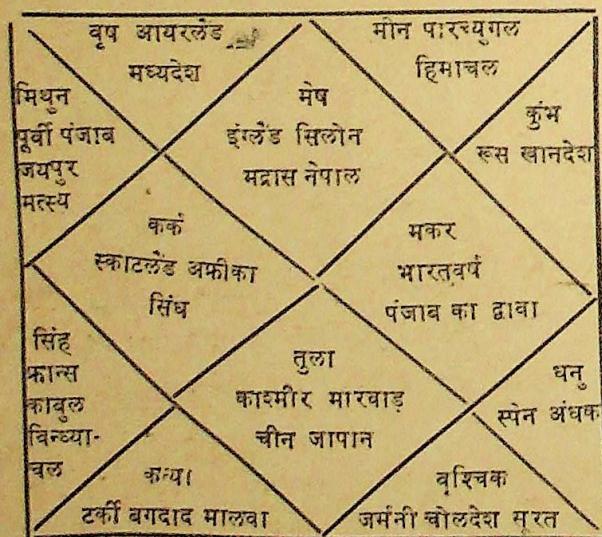 वृष आयरलेंड
मध्यदेश
मीन पारच्युगल
हिमाचल
मिथुन
पूर्वी पंजाब
जयपुर
मत्स्य
मेष
इंग्लेंड सिलोन
मद्रास नेपाल
कुंभ
रूस खानदेश
कर्क
स्काटलेंड अफ्रीका
सिंध
मकर
भारतवर्ष
पंजाब का द्वाबा
सिंह
फ्रान्स
काबुल
विन्ध्या-
चल
तुला
काश्मीर मारवाड़
चीन जापान
धनु
स्पेन अंधक
कन्या
टर्की बगदाद मालवा
वृश्चिक
जर्मनी चोलदेश सूरत